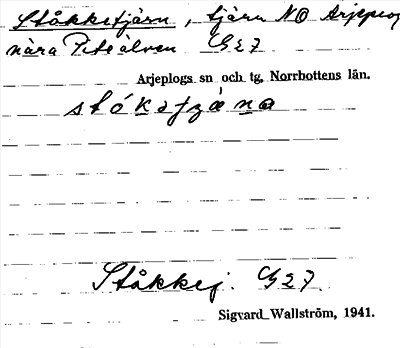 Ståkketjärn, tjärn NO Arjeplog
nära Piteälven G27
Arjeplogs sn och tg, Norrbottens län.
Ståkkej. G27.
Sigvard Wallström, 1941.